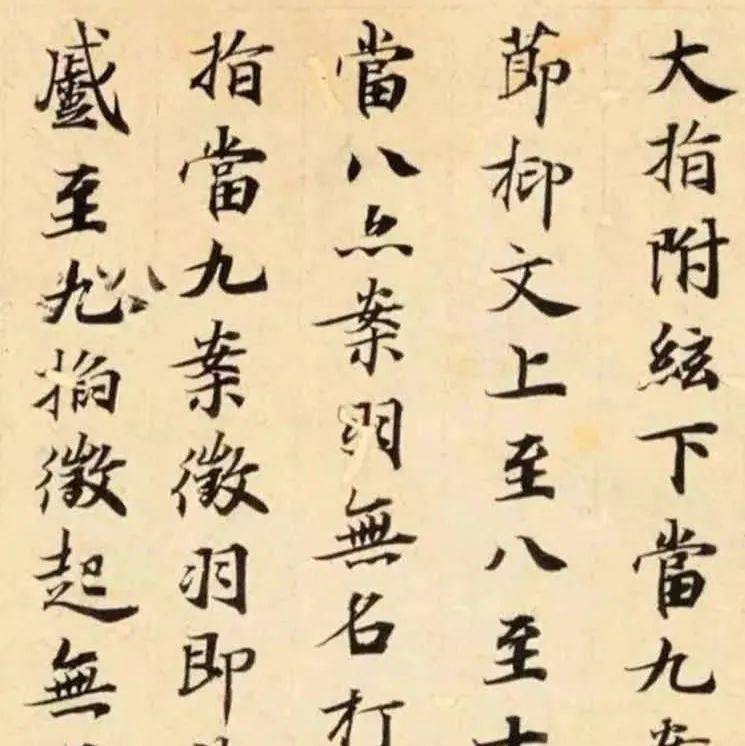 大指附絃下當九案
節抑文上至八至
當八亦案羽無名打
指當九案徵羽即
蹙至九掐徵起無